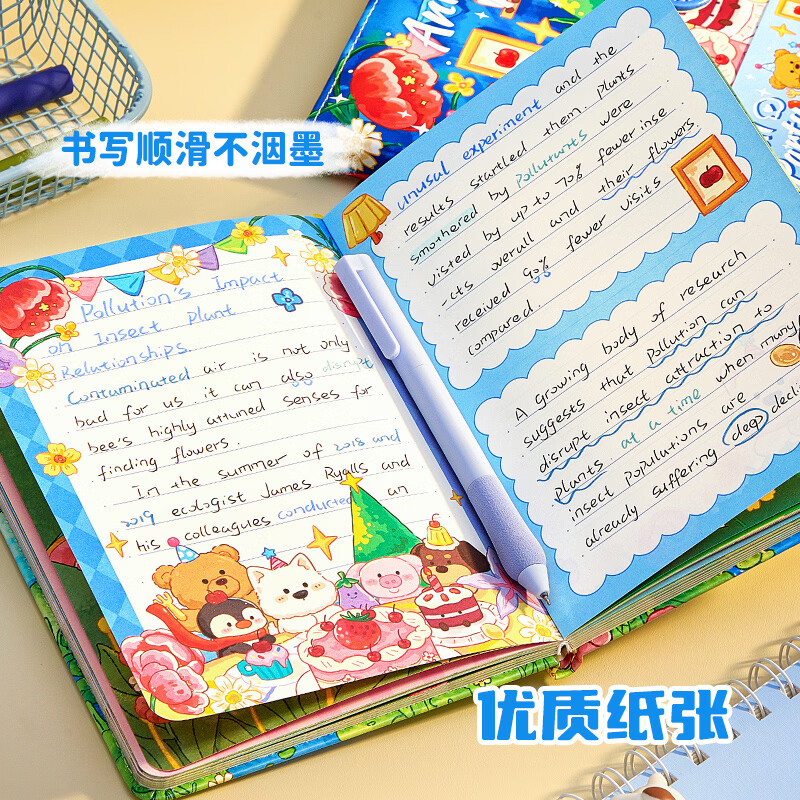 书写顺滑不洇墨
Pollution's Impact
on Insect Plant
Relationships.
Contaminated air is not only
bad for us it can also disrupt
bee's highly attuned senses for
finding flowers.
In the summer of 2018 and
2019 ecologist James Ryalls and
his colleagues conducted an
unusal experiment and the
results startled them. Plants
smothered by Pollutants were
visted by up to 70% fewer inse
-cts overall and their flowers
received 90% fewer visits
compared.
A growing body of research
suggests that pollution can
disrupt insect attraction to
plants at a time when many
insect populations are
already suffering deep decli
优质纸张